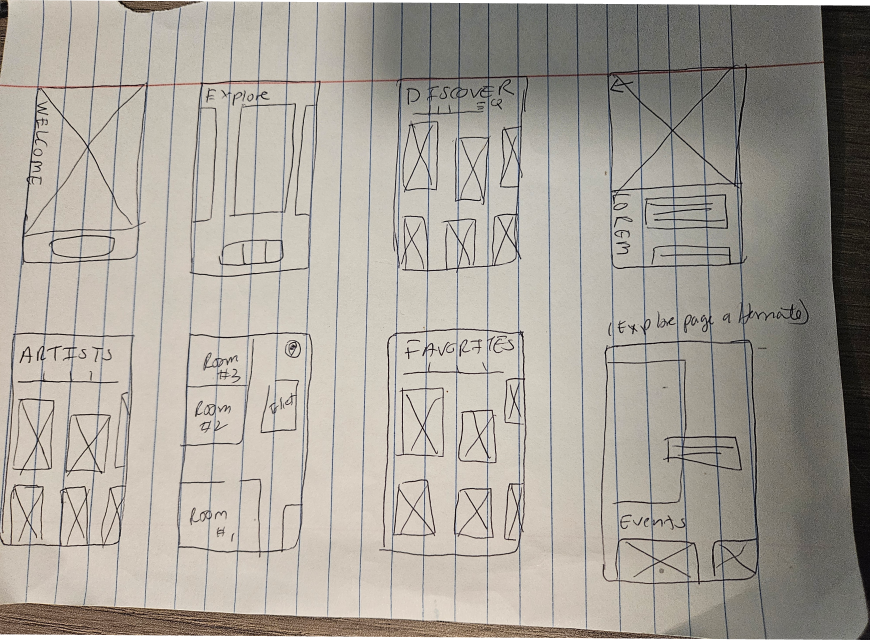 WELCOME
Explore
DISCOVER
LOREM
ARTISTS
Room
#3
Room
#2
Room
#1
FAVORITES
(Explore page alternate)
Events